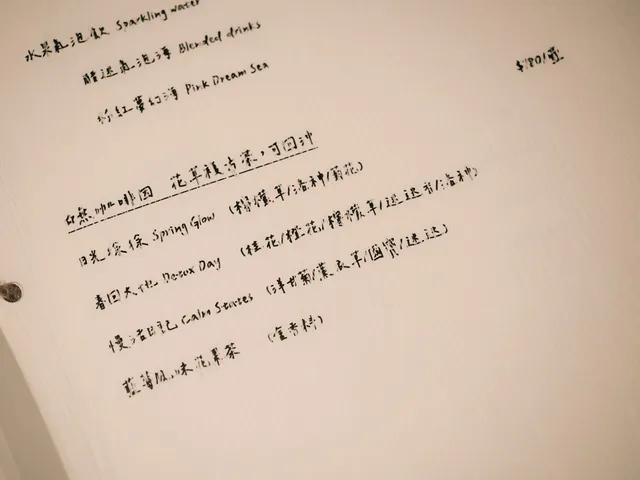 水果氣泡飲 Sparkling water
醋迷氣泡海 Blended drinks
粉紅夢幻海 Pink Dream Sea
$180/壺
無咖啡因 花草複方茶，可回沖
日光深深 Spring Glow (檸檬草/洛神/菊花)
春回大地 Detox Day (桂花/橙花/檸檬草/迷迭香/洛神)
慢活日記 Calm Stories (洋甘菊/薰衣草/迷迭)
藍莓風味花果茶